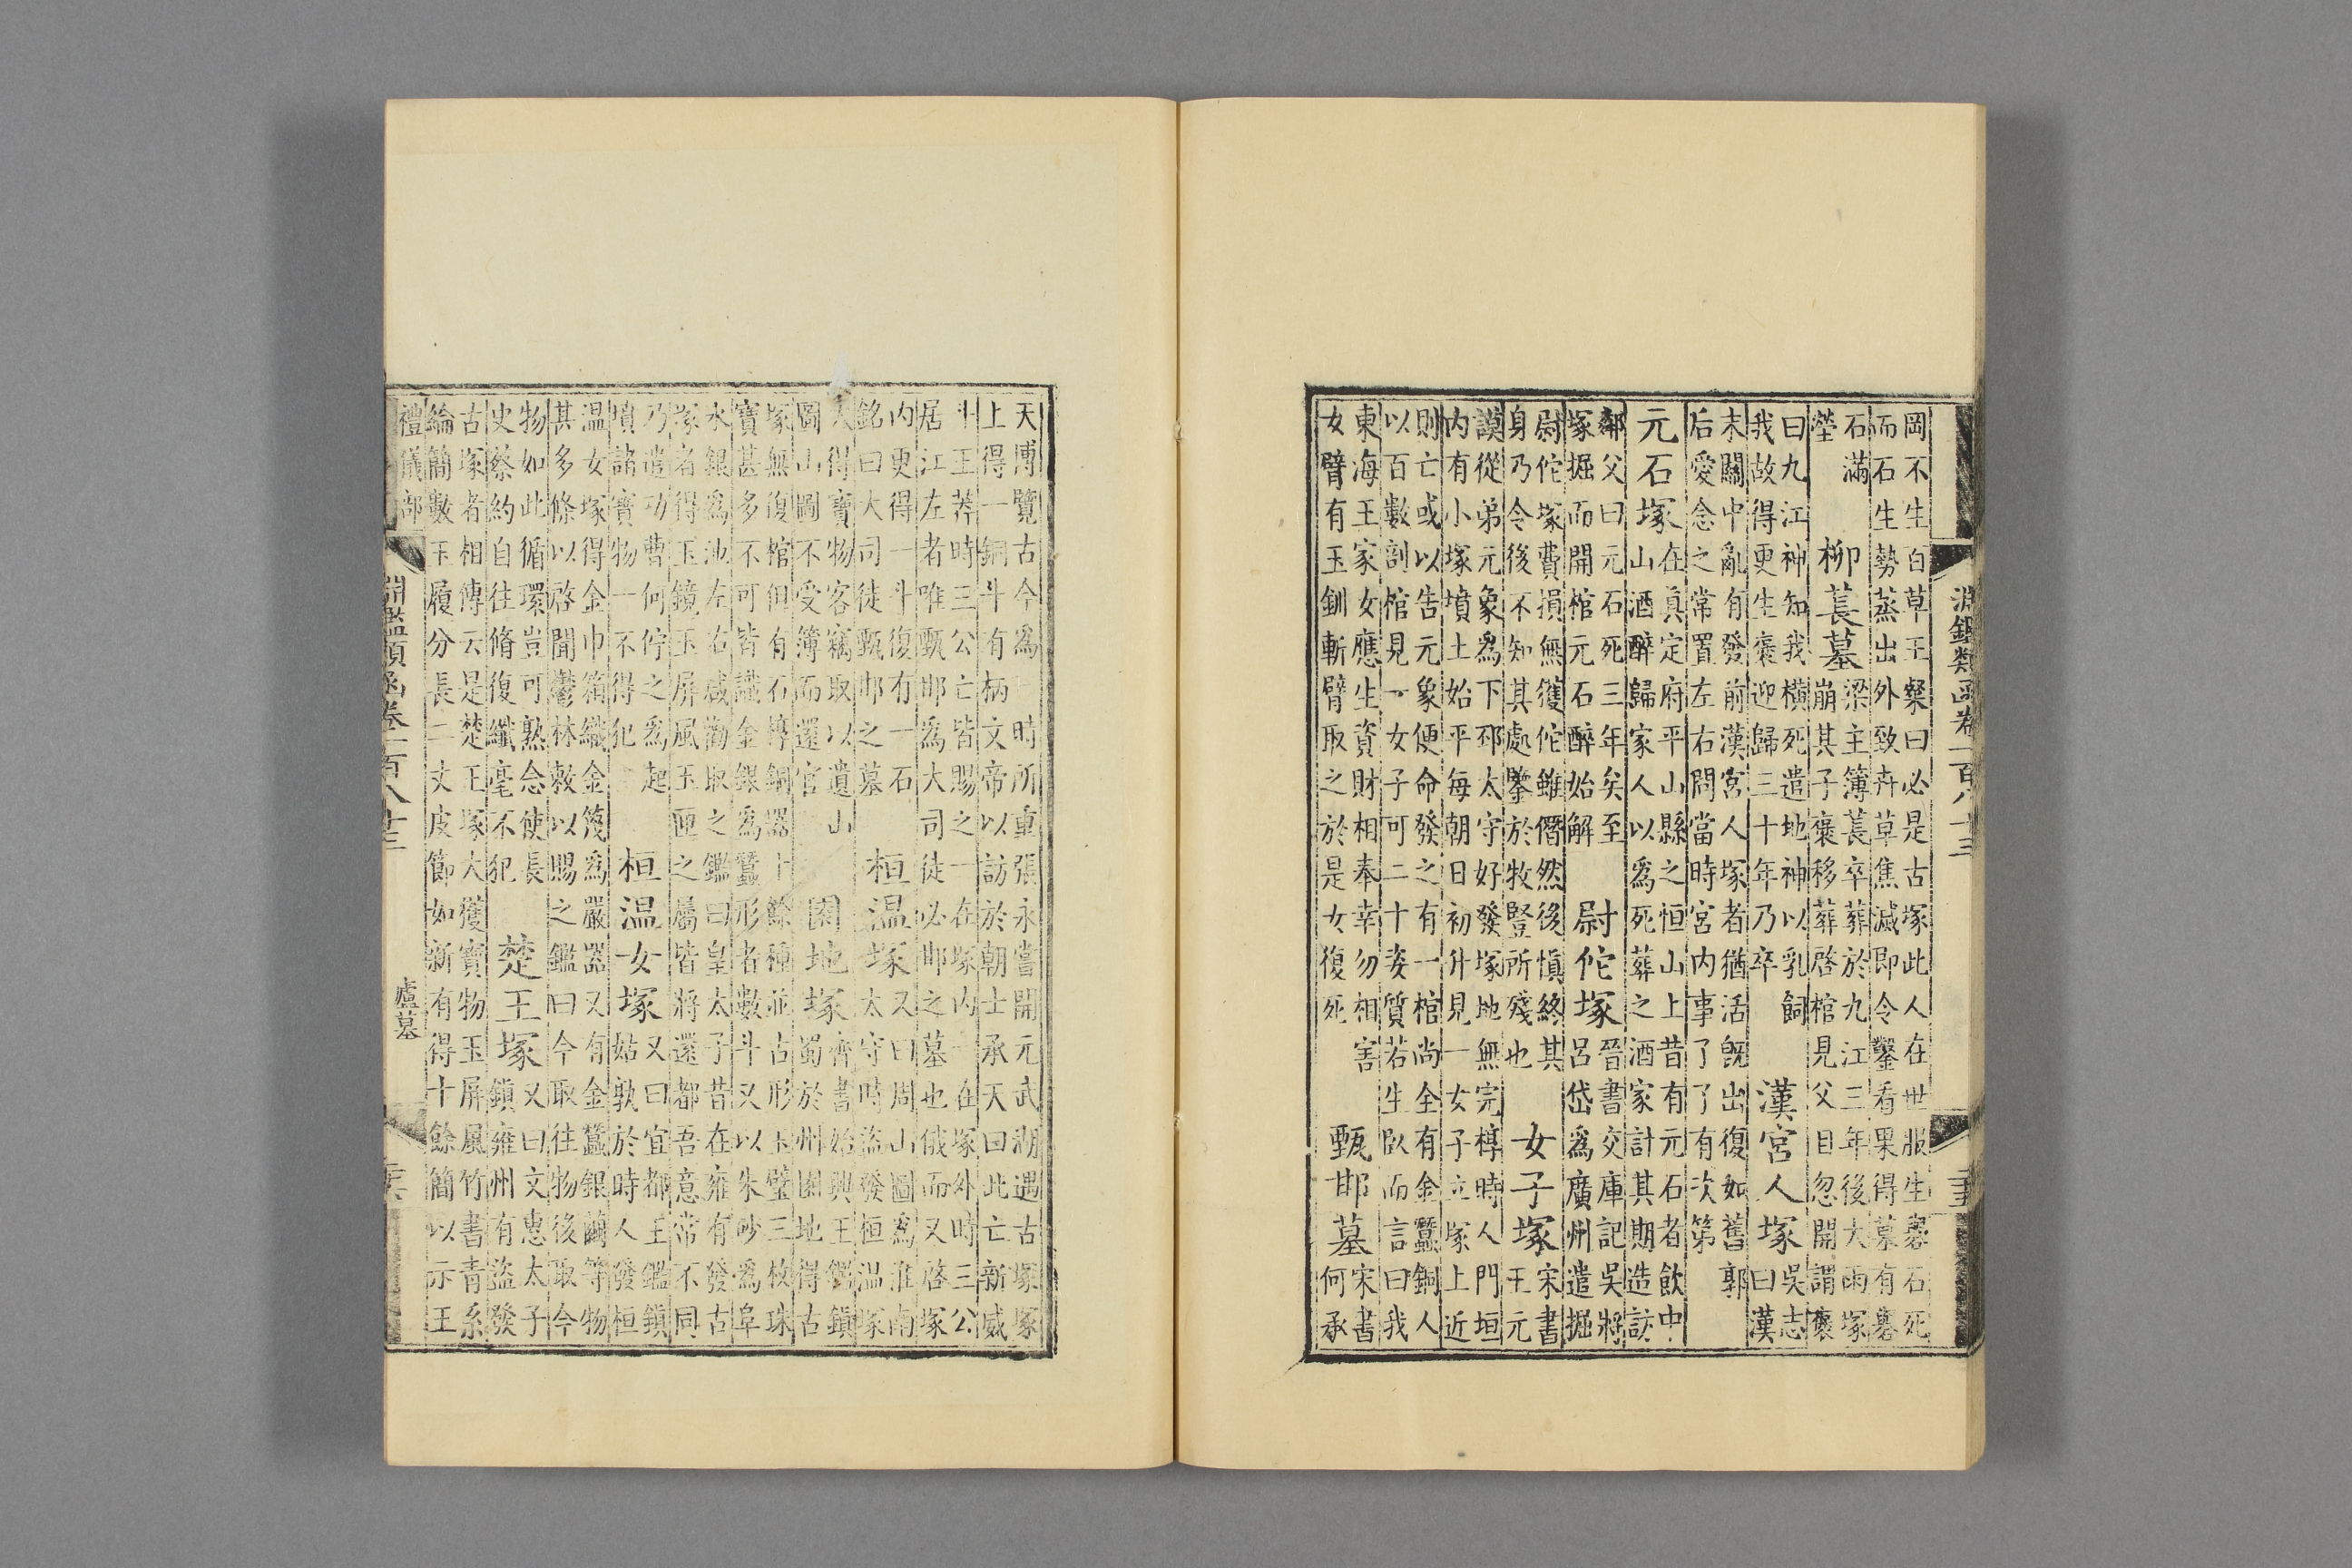 岡不生百草王粲曰必是古塚此人在世服生礜石死
而石生勢蒸出外致卉草焦滅即令鑿看果得墓有礜
石滿
塋
柳萇墓
梁主簿萇卒葬於九江三年後大雨塚
崩其子褒移葬啓棺見父目忽開謂褒
曰九江神知我橫死遣地神以乳飼
我故得更生褒迎歸三十年乃卒
漢宮人塚
吳志
曰漢
末關中亂有發前漢宮人塚者猶活旣出復如舊郭
后愛念之常置左右問當時宮内事了了有次第
元石塚
在真定府平山縣之恒山上昔有元石者飲中
山酒醉歸家人以爲死葬之酒家計其期造訪
鄰父曰元石死三年矣至
塚掘而開棺元石醉始解
尉佗塚
晉書交庫記吳將
呂岱爲廣州遣掘
尉佗塚費損無獲佗雖僭然後愼終其
身乃令後不知其處鑒於牧豎所殘也
女子塚
宋書
王元
謨從弟元象爲下邳太守好發塚地無完槨時人門垣
内有小塚墳土始平每朝日初升見一女子立塚上近
則亡或以告元象便命發之有一棺尚全有金蠶銅人
以百數剖棺見一女子可二十姿質若生臥而言曰我
東海王家女應生資財相奉幸勿相害
女臂有玉釧斬臂取之於是女復死
甄邯墓
宋書
何承
淵鑑類函卷一百八十三
天博覽古今爲時所重張永嘗開元武湖遇古塚塚
上得一銅斗有柄文帝以訪於朝士承天曰此亡新威
斗王莽時三公亡皆賜之一在塚内一在塚外時三公
居江左者唯甄邯爲大司徒必邯之墓也俄而又啓塚
内更得一斗復有一石
銘曰大司徒甄邯之墓
桓温塚
又曰周山圖爲淮南
太守時盜發桓温塚
大得寶物客竊取以遺山
圖山圖不受簿而還官
園地塚
齊書始興王鑑鎮
蜀於州園地得古
塚無復棺但有石槨銅器十餘種並古形玉璧三枚珠
寶甚多不可皆識金銀爲蠶形者數斗又以朱砂爲阜
水銀爲池左右咸勸取之鑑曰皇太子昔在雍有發古
塚者得玉鏡玉屏風玉匣之屬皆將還都吾意常不同
乃遣功曹何佇之爲起
墳諸寶物一不得犯
桓温女塚
又曰宜都王鑑鎮
姑孰於時人發桓
温女塚得金巾箱織金篾爲嚴器又有金蠶銀繭等物
甚多條以啓聞鬱林敕以賜之鑑曰今取往物後取今
物如此循環豈可熟念使長
史蔡約自往脩復纖毫不犯
楚王塚
又曰文惠太子
鎮雍州有盜發
古塚者相傳云是楚王塚大獲寶物玉屏風竹書青系
綸簡數玉履分長二丈皮節如新有得十餘簡以示王
禮儀部
淵鑑類函卷一百八十三
廬墓